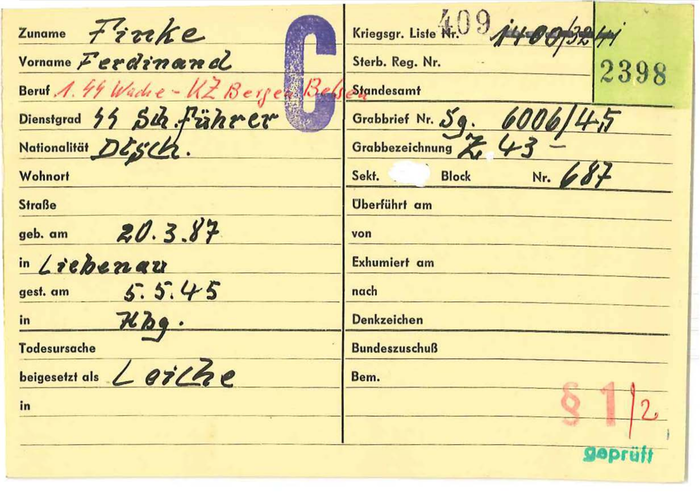 Zuname Finke
Vorname Ferdinand
Beruf 1. SS Wache - KZ Bergen Belsen
Dienstgrad SS Sch.führer
Nationalität Dtsch.
Wohnort
Straße
geb. am 20.3.87
in Liebenau
gest. am 5.5.45
in Hbg.
Todesursache
beigesetzt als Leiche
in
C
409
Kriegsgr. Liste Nr.
2398
Sterb. Reg. Nr.
Standesamt
Grabbrief Nr. Sg. 6006/45
Grabbezeichnung Z 43 -
Sekt. Block Nr. 687
Überführt am
von
Exhumiert am
nach
Denkzeichen
Bundeszuschuß
Bem.
§ 1/2
geprüft